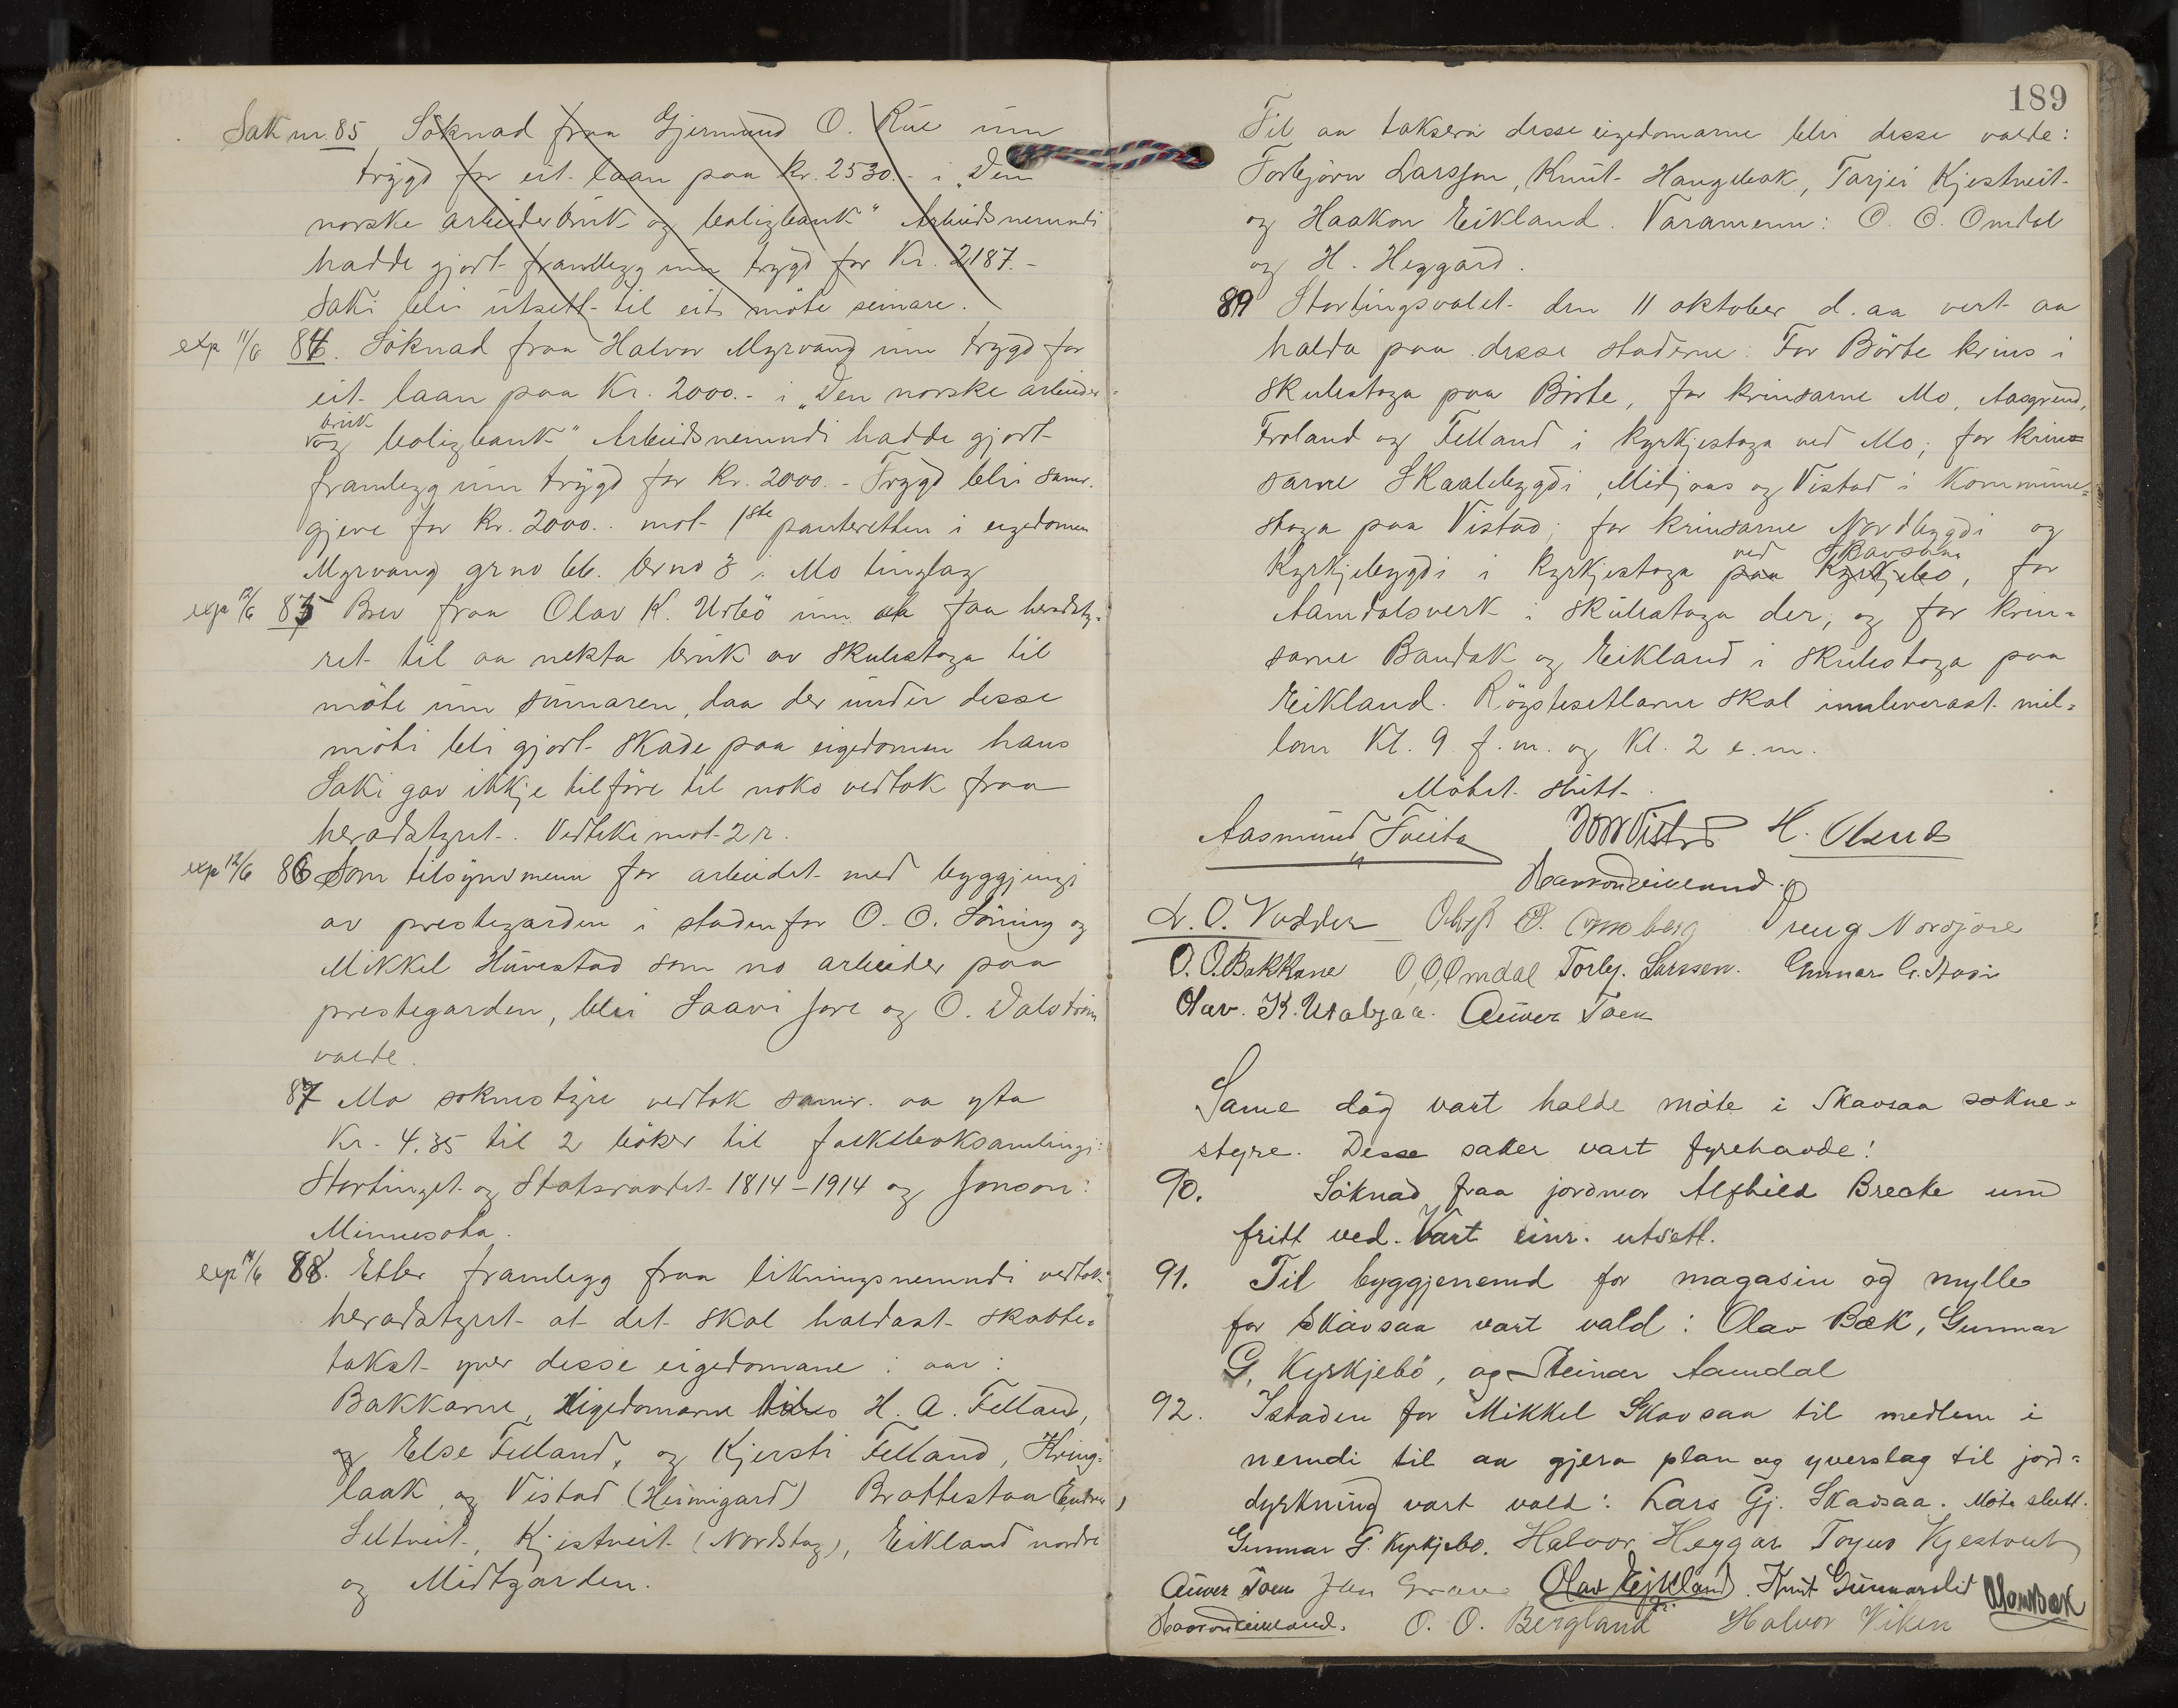 Sak nr. 85 Söknad fraa Gjermund O. Rue um
trygd for eit laan paa kr. 2530.- i „Den
norske arbeiderbruk og boligbank" Arbeidsnemndi
hadde gjort framlegg um trygd for Kr. 2187.-
Saki blei utsett til eit möte seinare.
exp 11/6 84. Söknad fraa Halvor Myrvang um trygd for
eit laan paa Kr. 2000.- i „Den norske arbeider-
bruk
og boligbank" Arbeidsnemndi hadde gjort
framlegg um trygd for Kr. 2000.- Trygd blei samr.
gjeve for Kr. 2000.- mot 1ste panteretten i eigedomen
Myrvang grno 66. brno 8 i Mo tinglag
exp 12/6 85 Brev fraa Olav K. Urbö um aa faa heradsty-
ret til aa nekta bruk av skulestoga til
möte um sumaren, daa der under desse
möti blei gjort skade paa eigedomen hans
Saki gav ikkje tilföre til noko vedtak fraa
heradstyret. Vedteke mot 2 r.
exp 12/6 86 Som tilsynsmenn for arbeidet med byggjingi
av prestegarden i staden for O. O. Söning og
Mikkel Huvestad som no arbeider paa
prestegarden, blei Saavi Jore og O. Dalström
valde.
87 Mo soknestyre vedtok samr. aa yta
Kr. 4.35 til 2 böker til folkeboksamlingi:
Stortinget og Statsraadet 1814-1914 og Jonson:
Minnesota.
exp 14/6 88. Etter framlegg fraa likningsnemndi vedtok
heradstyret at det skal haldast skatte-
takst yver desse eigedomane i aar:
Bakkarne, Eigedomarne til H. A. Felland,
og Else Felland, og Kjersti Felland, Kring-
laak og Vistad (Heimigard) Brottestaa (Endre)
Seltveit, Kjestveit (Nordstog), Eikland nordre
og Midtgarden.
189
Til aa taksera desse eigedomarne blei desse valde:
Torbjörn Larsson, Knut Haugebak, Tarjei Kjestveit
og Haakon Eikland. Varamenn: O. O. Omdal
og H. Heggard.
89 Stortingsvalet den 11 oktober d. aa vert aa
halda paa desse staderne: For Börte krins i
skulestoga paa Börte, for krinsarne Mo, Aasgrend,
Froland og Felland i kyrkjestoga ved Mo; for krin-
sarne Skaalibygdi, Midjaas og Vistad i Kommune-
stoga paa Vistad; for krinsarne Nordbygdi og
ved Skavsaa
Kyrkjebygdi i Kyrkjestoga paa Kyrkjebo, for
Aamdalsverk i skulestoga der, og for krin-
sarne Bandak og Eikland i skulestoga paa
Eikland. Röystesetlarne skal innleverast mil-
lom Kl. 9 f.m. og Kl. 2 e.m.
Mötet slutt.
Aasmund Tveito H. Olsund
Haakon Eikland
D. O. Vadder Dreng Nordjore
O. O. Bakkane O. O. Omdal Torbj. Larssen. Gunnar G. Stosi
Olav. K. Urabjaa. Eiver Toen
Same dag vart halde möte i Skavsaa sokne-
styre. Desse saker vart fyrehavde!
90. Söknad fraa jordmor Alfhild Brekke um
fritt ved. Vart einr. utsett.
91. Til byggjenemd for magasin og mylle
for Skavsaa vart vald: Olav Bæk, Gunnar
G. Kyrkjebö, og Steinar Aamdal
92. Istaden for Mikkel Skavsaa til medlem i
nemdi til aa gjera plan og yverslag til jord-
dyrkning vart vald: Lars Gj. Skavsaa. Möte slutt.
Gunnar G. Kyrkjebö. Halvor Heggar Torjus Kjestveit
Eiver Toen Olav Eikland. Knut Gunnarslid Olav Bæk
Haakon Eikland. O. O. Bergland Halvor Viken